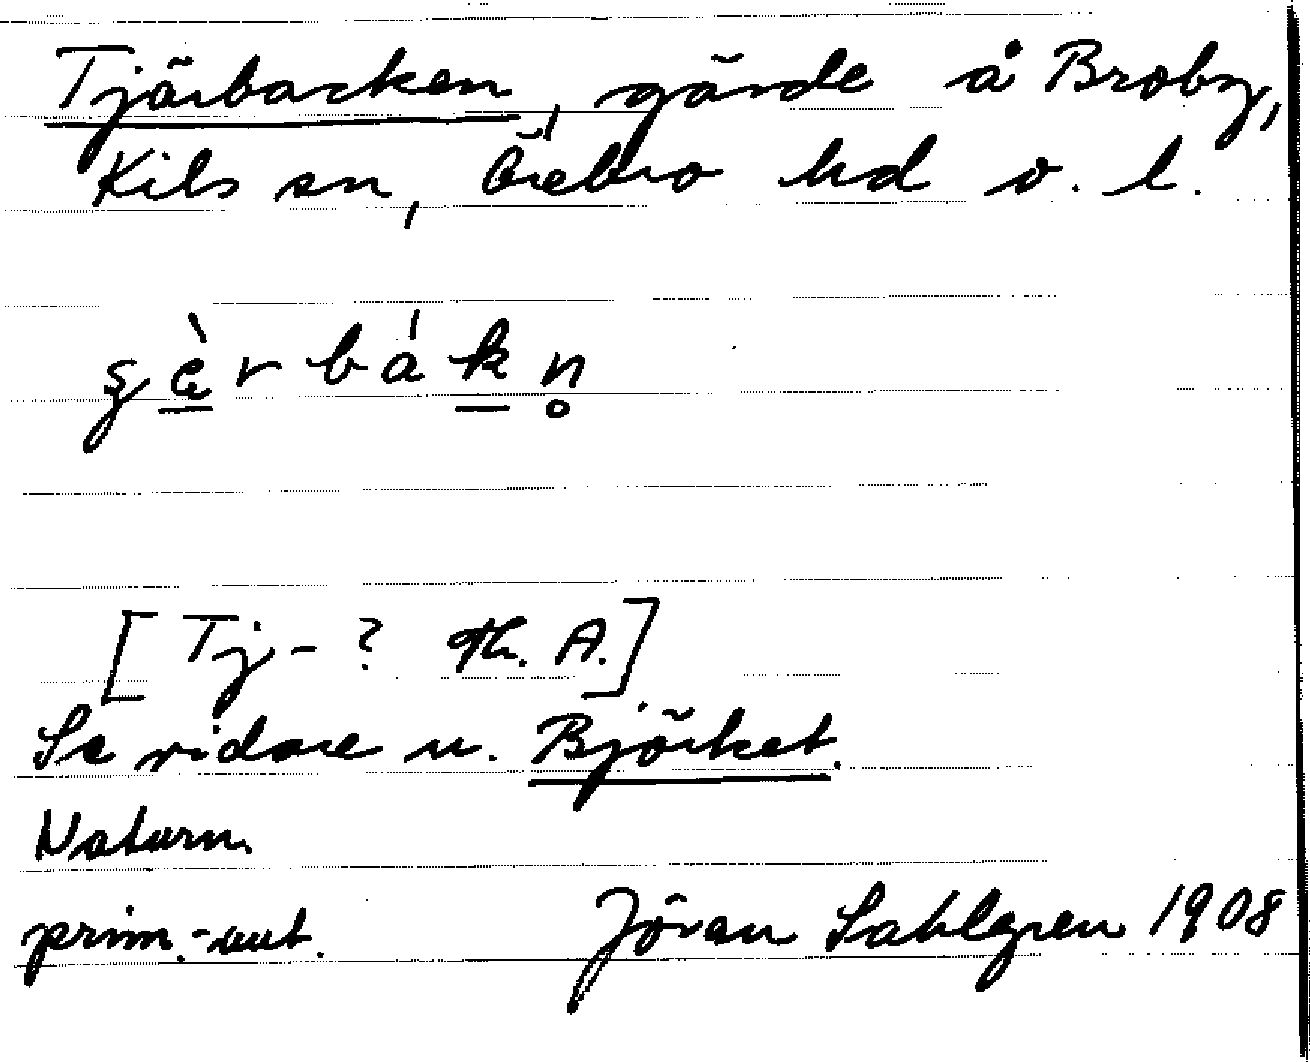 Tjärbacken, gärde å Broby,
Kils sn, Örebro hd o. l.
ʂæ̀rbákn̥
[Tj-? Th. A.]
Se vidare u. Björket.
Naturn.
prim.-aut. Jöran Sahlgren 1908